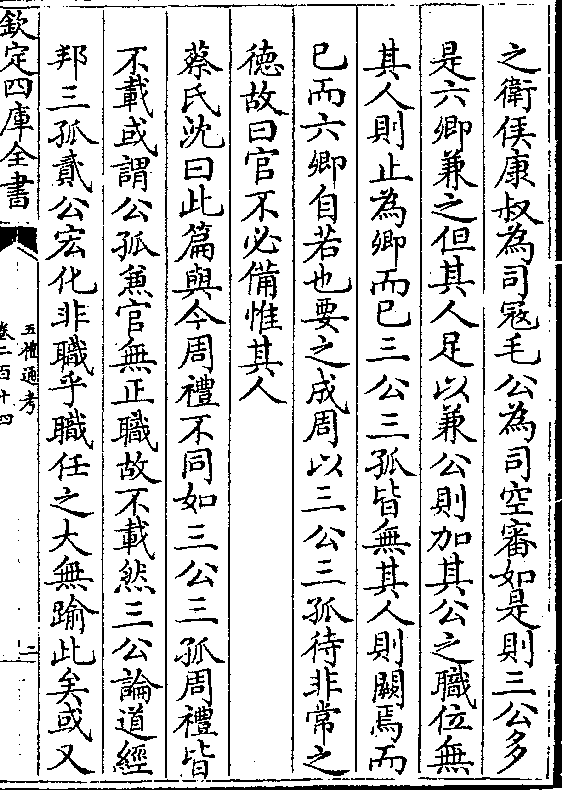 之衛侯康叔為司寇毛公為司空審如是則三公多
是六卿兼之但其人足以兼公則加其公之職位無
其人則止為卿而已三公三孤皆無其人則闕焉而
已而六卿自若也要之成周以三公三孤待非常之
德故曰官不必備惟其人
蔡氏沈曰此篇與今周禮不同如三公三孤周禮皆
不載或謂公孤兼官無正職故不載然三公論道經
邦三孤貳公宏化非職乎職任之大無踰此矣或又
欽定四庫全書
五禮通考
卷二百十四
二